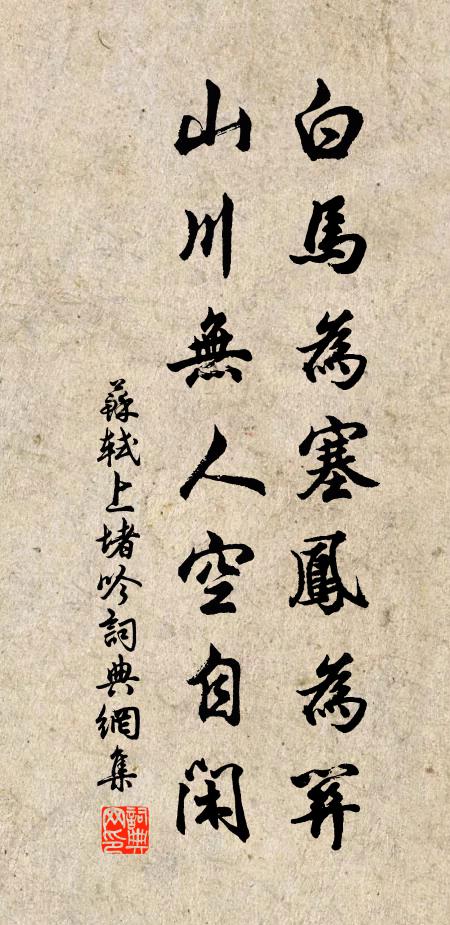 白馬為塞鳳為關
山川無人空自閑
蘇軾上堵吟詞典網集
詞典网印